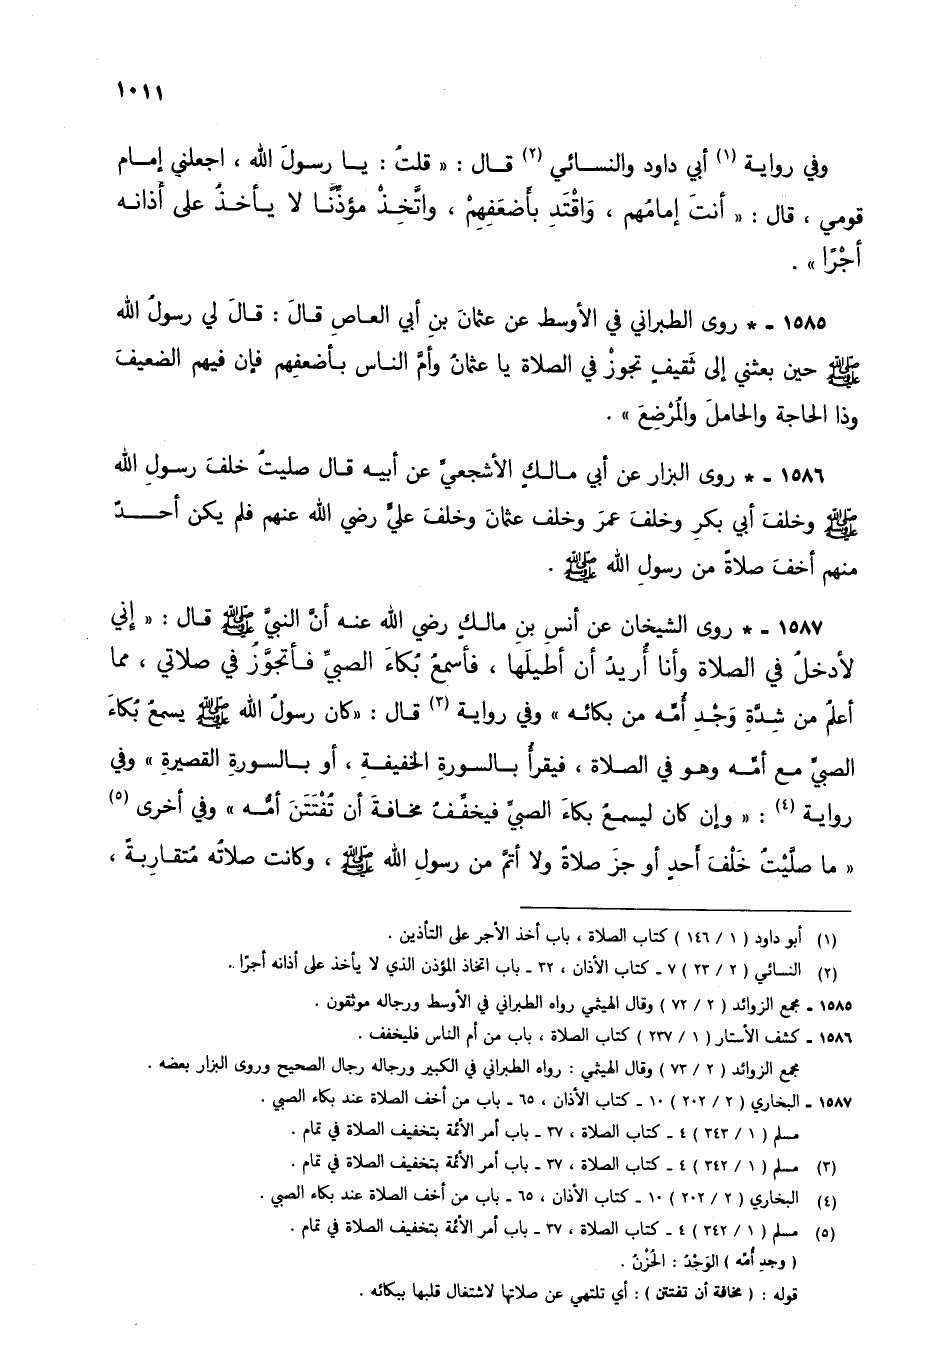 ١٠١١
وفي رواية (١) أبي داود والنسائي (٢) قال : « قلتُ : يا رسولَ الله ، اجعلني إمام
قومي ، قال : « أنتَ إمامُهم ، وَاقْتَدِ بأَضعَفِهِمْ ، واتَّخِذْ مؤذِّنًا لا يأخذُ على أذانه
أجْرًا » .
١٥٨٥ - * روى الطبراني في الأوسط عن عثمانَ بنِ أبي العاصِ قالَ : قالَ لي رسولُ الله
ﷺ حين بعثني إلى ثَقيفٍ تجوزْ في الصلاة يا عثمانُ وأمَّ الناس بأضعفِهم فإن فيهم الضعيفَ
وذا الحاجة والحاملَ والمُرْضِعَ » .
١٥٨٦ - * روى البزار عن أبي مالكٍ الأشجعيِّ عن أبيه قال صليتُ خلفَ رسولِ الله
ﷺ وخلفَ أبي بكرٍ وخلفَ عمرَ وخلف عثمانَ وخلفَ عليٍّ رضي الله عنهم فلم يكن أحدٌ
منهم أخفَ صلاةً من رسولِ الله ﷺ .
١٥٨٧ - * روى الشيخان عن أنسِ بنِ مالكٍ رضي الله عنه أنَّ النبيَّ ﷺ قال : « إني
لأدخلُ في الصلاة وأنا أُريدُ أن أطيلَها ، فأسمعُ بُكاءَ الصبيِّ فأتجوَّزُ في صلاتي ، مما
أعلمُ من شِدَّةِ وَجْدِ أُمِّه من بكائه » وفي رواية (٣) قال : «كان رسولُ الله ﷺ يسمعُ بُكاءَ
الصبيِّ مع أمِّه وهو في الصلاة ، فيقرأُ بالسورةِ الخفيفةِ ، أو بالسورةِ القصيرةِ » وفي
رواية (٤) : « وإن كان ليسمعُ بكاءَ الصبيِّ فيخفِّفُ مخافةَ أن تُفْتَتَنَ أمُّه » وفي أخرى (٥)
« ما صلَّيْتُ خَلْفَ أَحدٍ أو جزَ صلاةً ولا أتمَّ من رسولِ الله ﷺ ، وكانت صلاتُه مُتقاربةً ،
(١) أبو داود ( ١ / ١٤٦ ) كتاب الصلاة ، باب أخذ الأجر على التأذين .
(٢) النسائي ( ٢ / ٢٣ ) ٧ - كتاب الأذان ، ٣٢ - باب اتخاذ المؤذن الذي لا يأخذ على أذانه أجرًا .
١٥٨٥ - مجمع الزوائد ( ٢ / ٧٢ ) وقال الهيثمي رواه الطبراني في الأوسط ورجاله موثقون .
١٥٨٦ - كشف الأستار ( ١ / ٢٣٧ ) كتاب الصلاة ، باب من أم الناس فليخفف .
مجمع الزوائد ( ٢ / ٧٣ ) وقال الهيثمي : رواه الطبراني في الكبير ورجاله رجال الصحيح وروى البزار بعضه .
١٥٨٧ - البخاري ( ٢ / ٢٠٢ ) ١٠ - كتاب الأذان ، ٦٥ - باب من أخف الصلاة عند بكاء الصبي .
مسلم ( ١ / ٣٤٣ ) ٤ - كتاب الصلاة ، ٣٧ - باب أمر الأئمة بتخفيف الصلاة في تمام .
(٣) مسلم ( ١ / ٣٤٢ ) ٤ - كتاب الصلاة ، ٣٧ - باب أمر الأئمة بتخفيف الصلاة في تمام .
(٤) البخاري ( ٢ / ٢٠٢ ) ١٠ - كتاب الأذان ، ٦٥ - باب من أخف الصلاة عند بكاء الصبي .
(٥) مسلم ( ١ / ٣٤٢ ) ٤ - كتاب الصلاة ، ٣٧ - باب أمر الأئمة بتخفيف الصلاة في تمام .
( وجدِ أُمِّه ) الوَجْدُ : الحُزْنُ .
قوله : ( مخافة أن تفتتن ) : أي تلتهي عن صلاتها لاشتغال قلبها ببكائه .